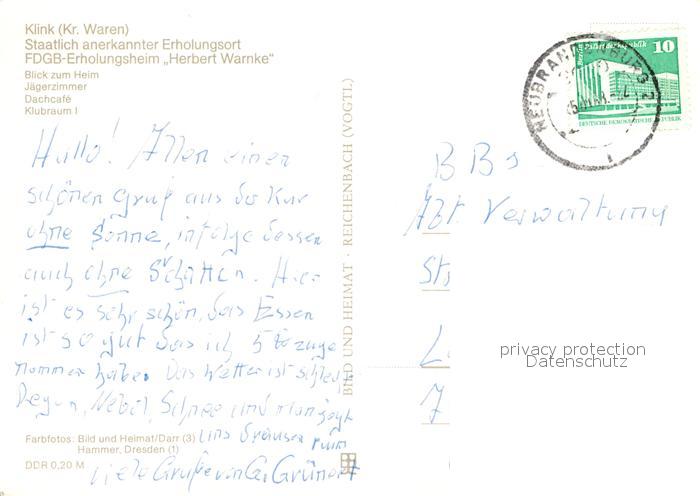 Klink (Kr. Waren)
Staatlich anerkannter Erholungsort
FDGB-Erholungsheim „Herbert Warnke"
Blick zum Heim
Jägerzimmer
Dachcafé
Klubraum I
Hallo! Allen einen
schönen Gruß aus der Kur
ohne Sonne, infolge dessen
auch ohne Schatten. Hier
ist es sehr schön, das Essen
ist so gut das ich 5 kg zuge
nommen habe. Das Wetter ist schlecht
Regen, Nebel, Schnee und man jagt
uns draußen rum
viele Grüße von
Farbfotos: Bild und Heimat/Darr (3)
Hammer, Dresden (1)
DDR 0,20 M
BILD UND HEIMAT · REICHENBACH (VOGTL)
Berlin Palast der Republik 10
DEUTSCHE DEMOKRATISCHE REPUBLIK
NEUBRANDENBURG 2
BBs
Abt. Verwaltung
privacy protection
Datenschutz